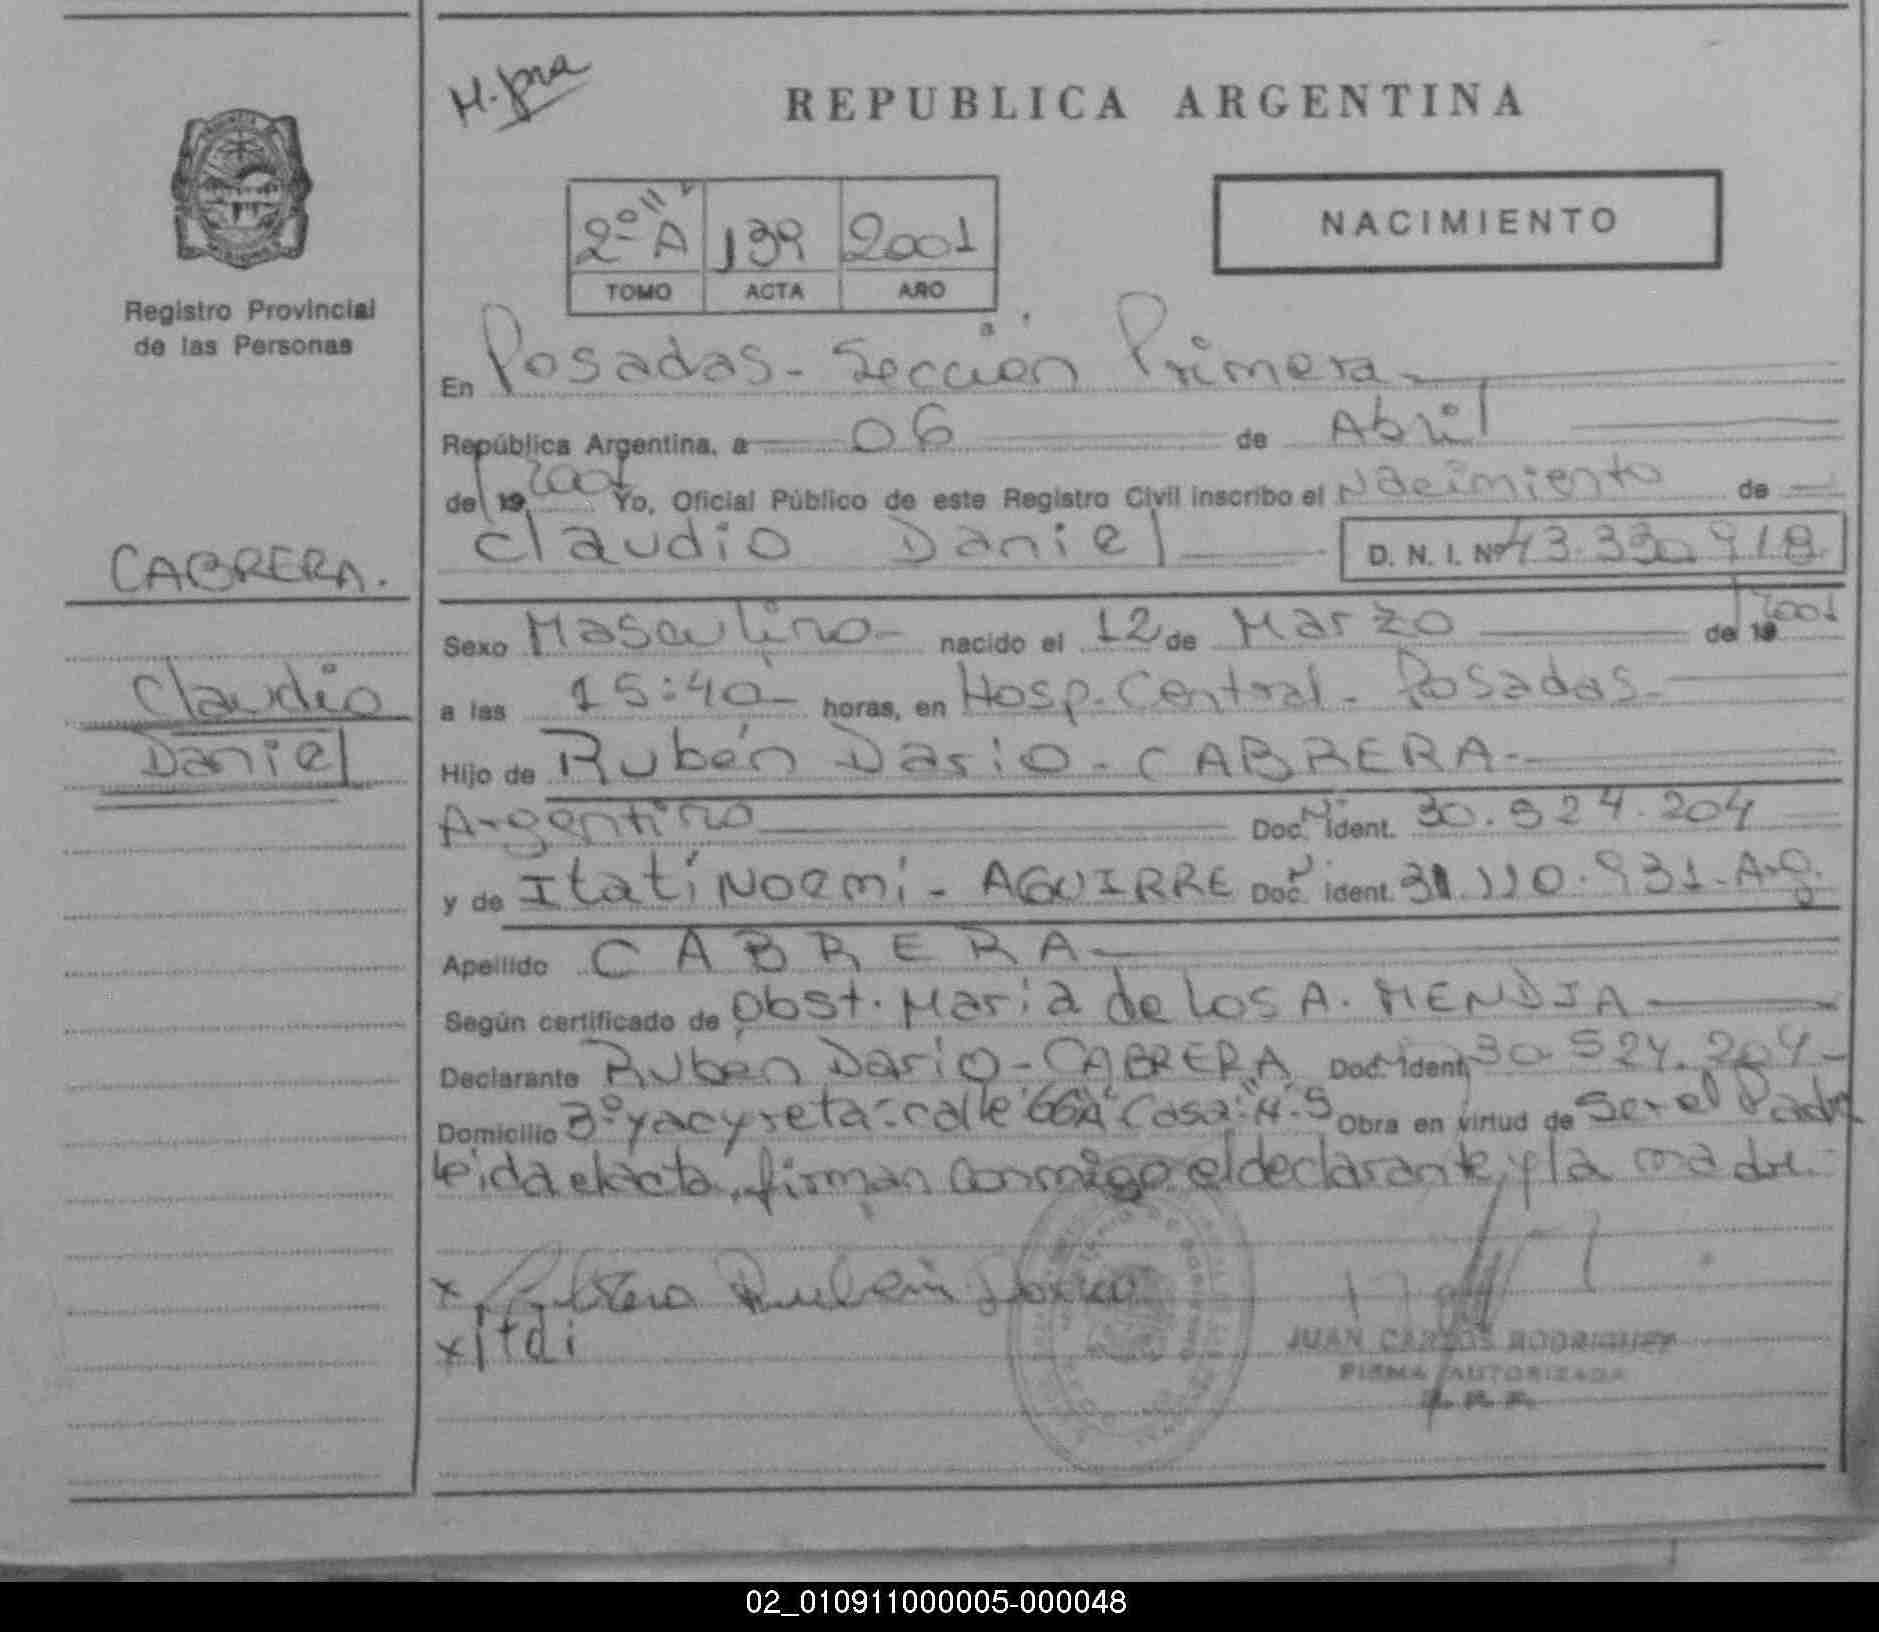 H. pra
REPUBLICA ARGENTINA
2º "A" 139 2001
TOMO ACTA AÑO
NACIMIENTO
Registro Provincial
de las Personas
En Posadas - Sección Primera -
República Argentina, a 06 de Abril
de 19 2001 Yo, Oficial Público de este Registro Civil inscribo el Nacimiento de
Claudio Daniel D. N. I. Nº 43.330.918
CABRERA.
Claudio
Daniel
Sexo Masculino - nacido el 12 de Marzo de 19 2001
a las 15:40 - horas, en Hosp. Central - Posadas -
Hijo de Rubén Dario - CABRERA -
Argentino Doc. Ident. 30.524.204
y de Itatí Noemi - AGUIRRE Doc. Ident. 31.110.931 - Arg.
Apellido CABRERA -
Según certificado de Obst. Maria de Los A. MENDIA
Declarante Ruben Dario - CABRERA Doc. Ident. 30.524.204 -
Domicilio Bº yacyreta - calle "66A" Casa: "H - 5 Obra en virtud de Ser el Padre
leida el acta, firman conmigo el declarante y la madre.
x Cabrera Ruben Dario
x itati
JUAN CARLOS RODRIGUEZ
FIRMA AUTORIZADA
R. P. P.
02_010911000005-000048